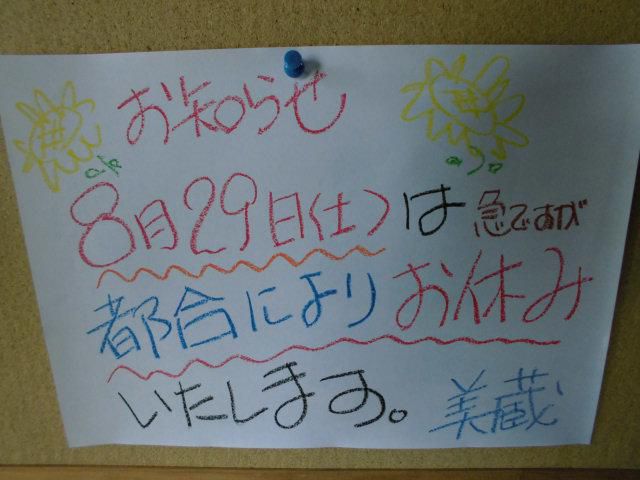 お知らせ
8月29日(土)は急ですが
都合によりお休み
いたします。美蔵